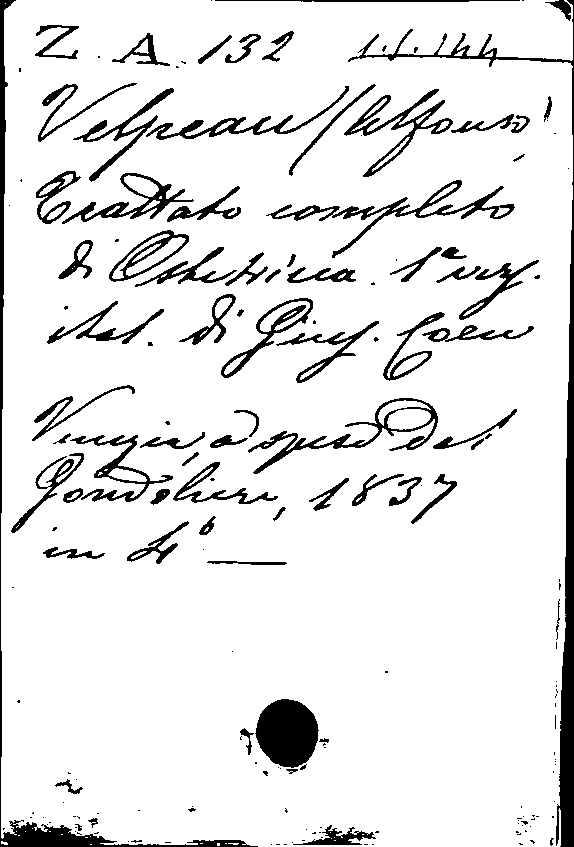 Z. A. 132 1.S.144
Velpeau (Alfonso)
Trattato completo
di Ostetricia. 1ª vers.
ital. di Gius. Coen
Venezia, a spese del
Gondoliere, 1837
in 4º —